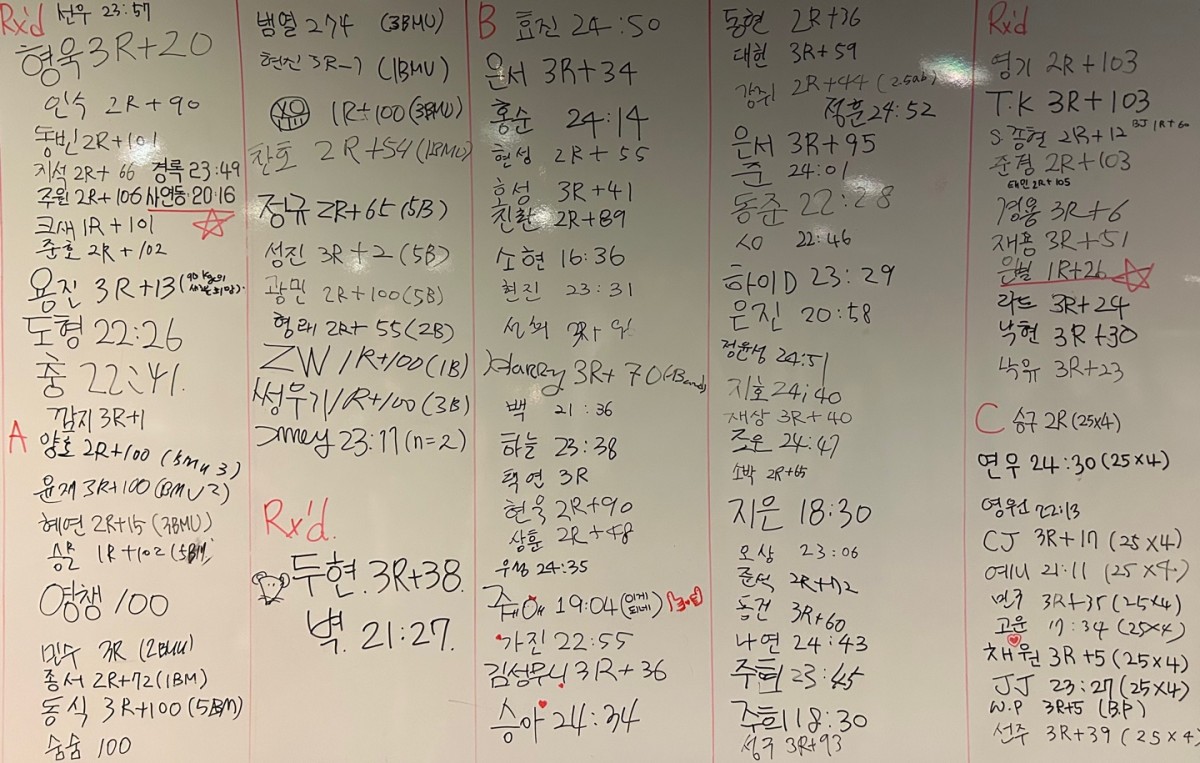 Rx'd 선우 23:57
형욱 3R+20
인수 2R+90
동빈 2R+101
지선 2R+66 경록 23:49
주원 2R+106 사연등:20:16
크새 1R+101
준호 2R+102
용진 3R+13
도형 22:26
충 22:41.
감지 3R+1
A
양호 2R+100 (BMU 3)
윤재 3R+100 (BMU 2)
혜연 2R+15 (3BMU)
1R+102 (5BM)
영쌩 100
민수 3R (2BMU)
종서 2R+72 (1BM)
동식 3R+100 (5BM)
숨숨 100
범열 274 (3BMU)
현진 3R-7 (1BMU)
XO 1R+100 (3BMU)
찬호 2R+54 (1BMU)
정규 2R+65 (5B)
성진 3R+2 (5B)
광민 2R+100 (5B)
형래 2R+55 (2B)
ZW 1R+100 (1B)
썽우기 1R+100 (3B)
23:17 (n=2)
Rx'd.
두현. 3R+38.
벽. 21:27.
B 효진 24:50
은서 3R+34
홍순 24:14
현성 2R+55
효성 3R+41
진환 2R+89
소현 16:36
현진 23:31
Harry 3R+70
백 21:36
하늘 23:38
택연 3R
현욱 2R+90
상훈 2R+48
우성 24:35
19:04 (이게 되네)
가진 22:55
김성무니 3R+36
승아 24:34
동현 2R+36
대현 3R+59
강쥐 2R+44
정훈 24:52
은서 3R+95
준 24:01
동준 22:28
22:46
하이D 23:29
은진 20:58
정윤성 24:51
지호 24:40
재상 3R+40
조은 24:47
소박 2R+65
지은 18:30
오상 23:06
준석 2R+72
동건 3R+60
나연 24:43
주혁 23:45
주희 18:30
성구 3R+93
Rx'd
영기 2R+103
T.K 3R+103
BJ 1R+60
S.종현 2R+12
준정 2R+103
태민 2R+105
경용 3R+6
재용 3R+51
은별 1R+26
라드 3R+24
낙현 3R+30
낙유 3R+23
C 송구 2R (25x4)
연우 24:30 (25x4)
영원 22:13
CJ 3R+17 (25x4)
예니 21:11 (25x4)
민구 3R+35 (25x4)
고운 17:34 (25x4)
채원 3R+5 (25x4)
JJ 23:27 (25x4)
W.P 3R+5 (B.P)
선주 3R+39 (25x4)